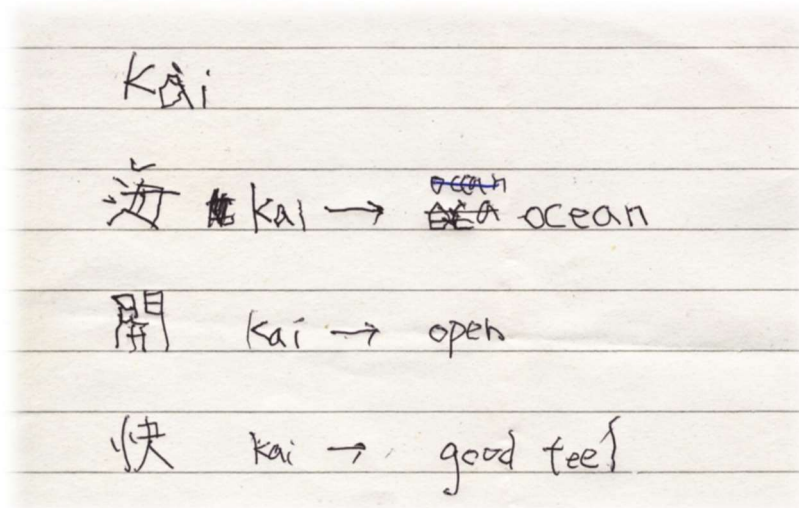 Kai
海 kai → ocean
開 kai → open
快 kai → good feel